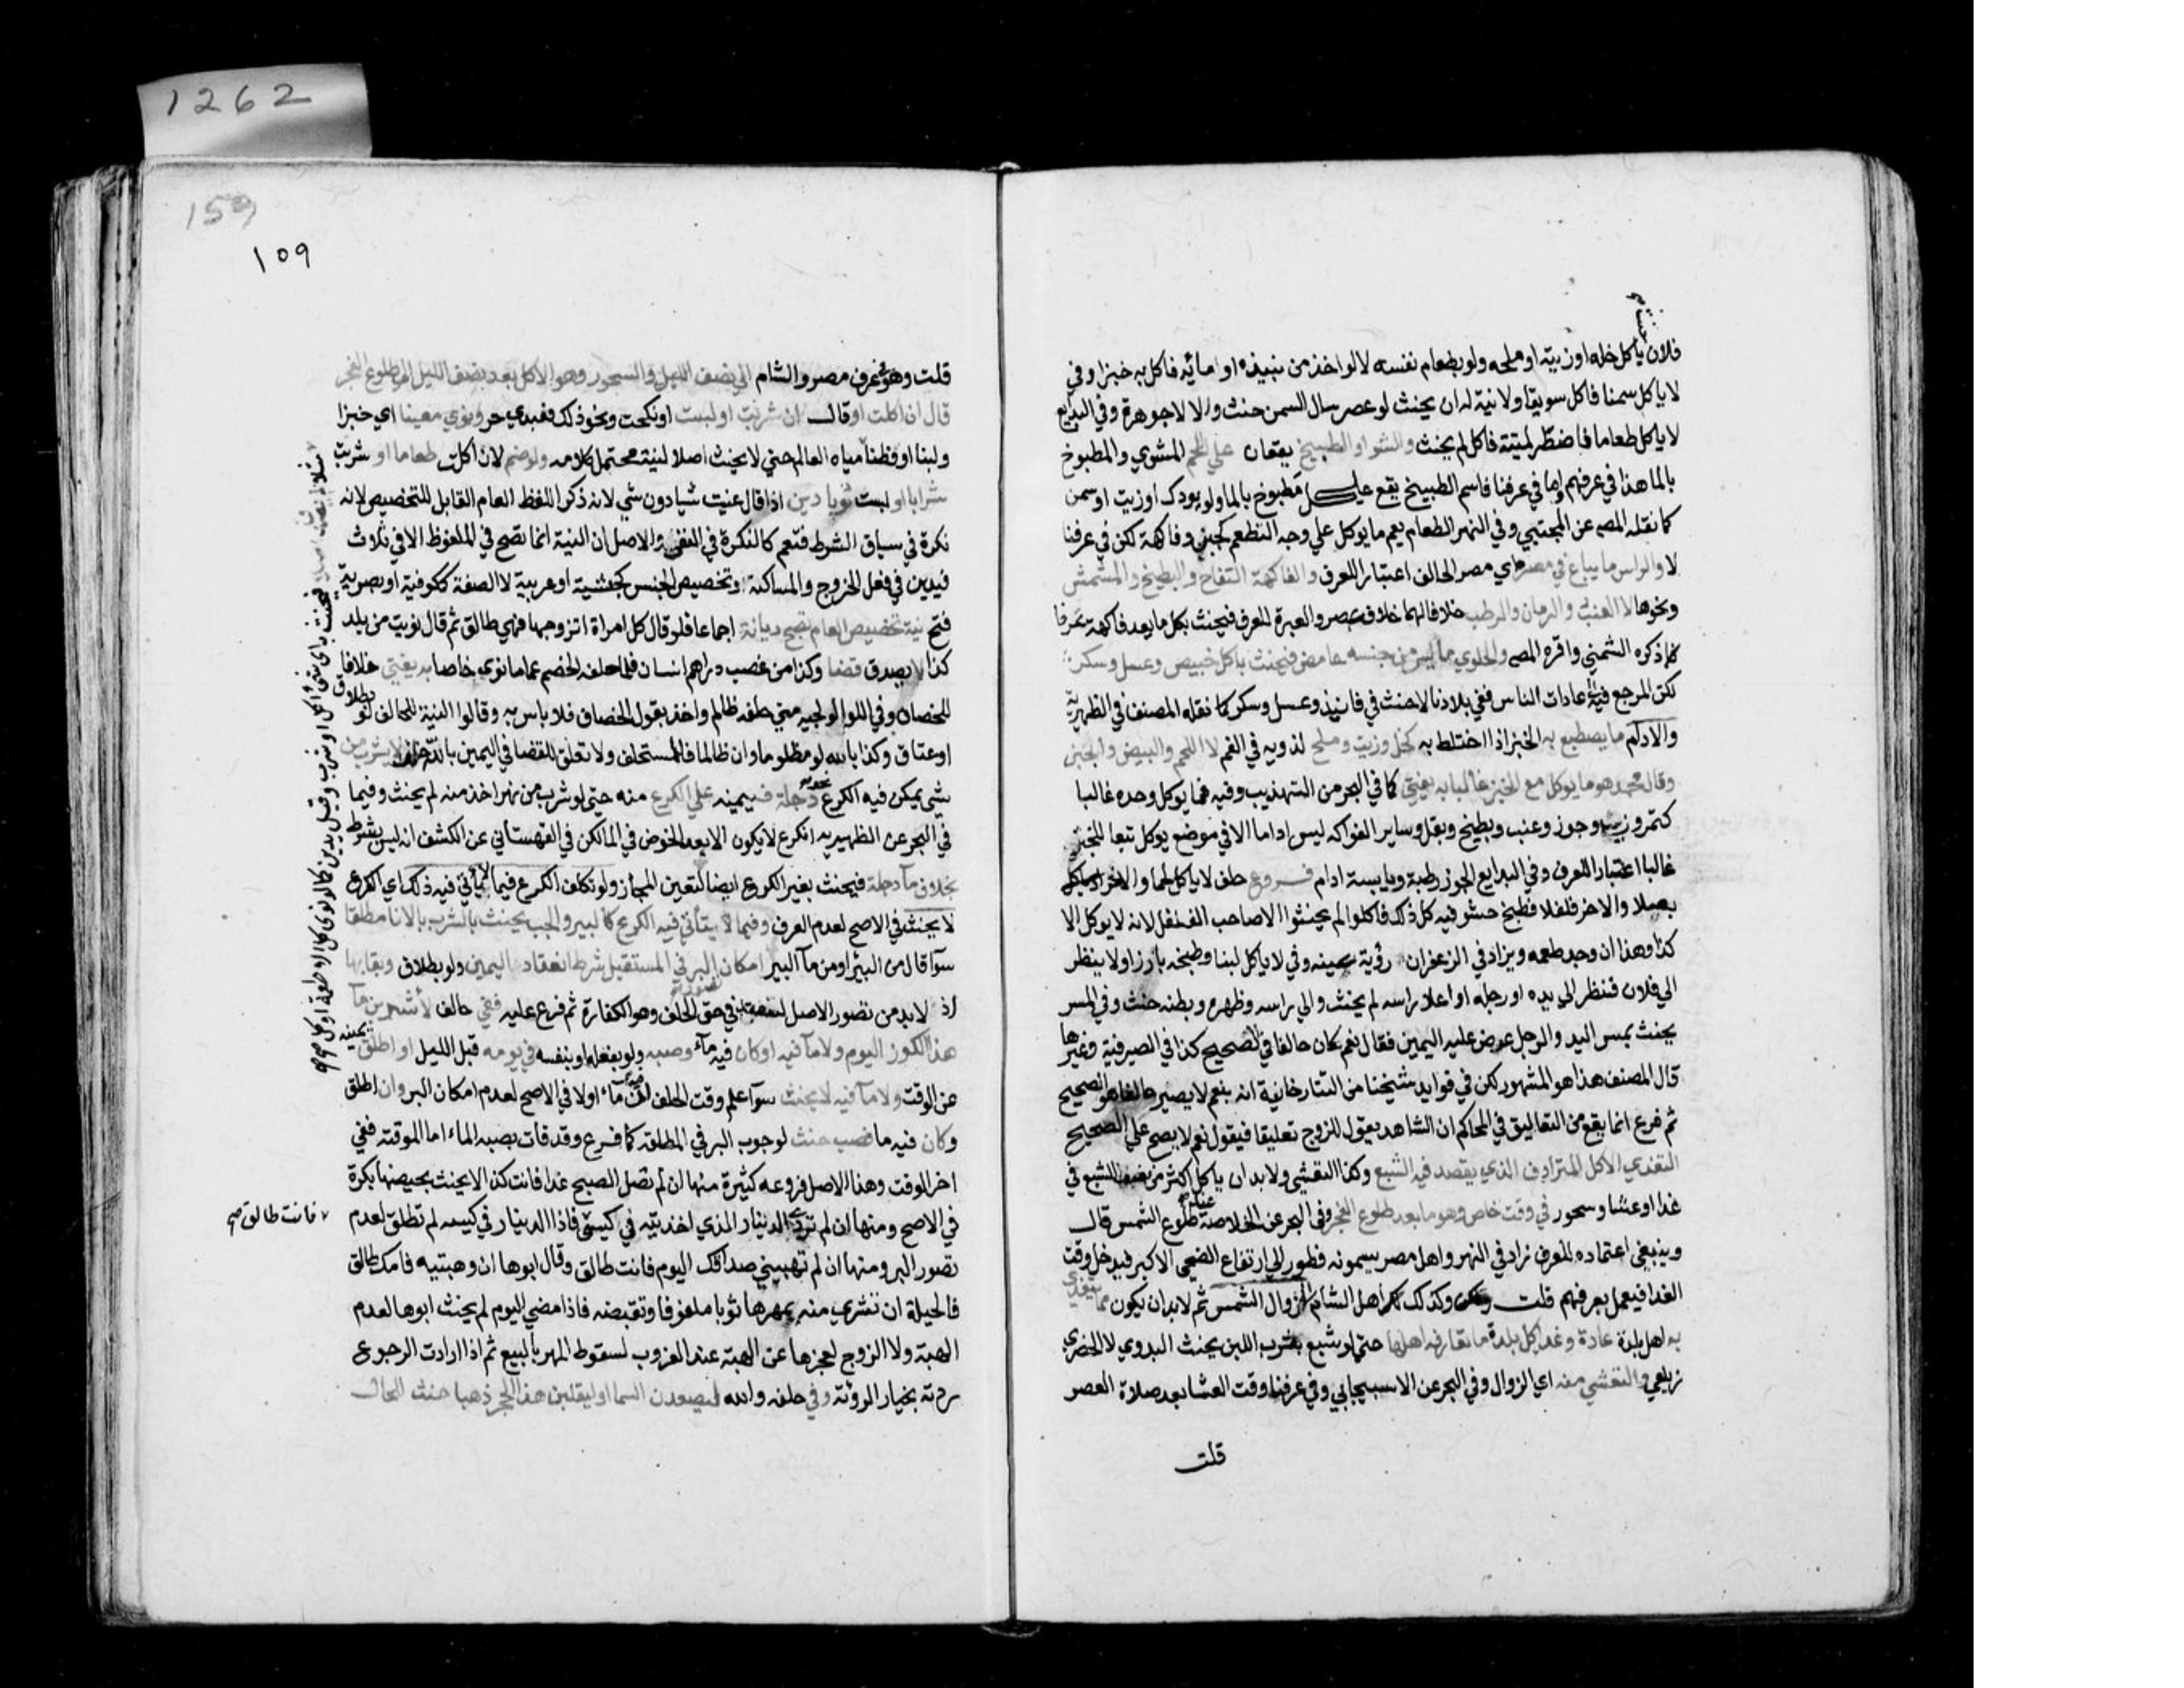 1262
159
١٥٩
فلان يأكل خله او زيته او ملحه ولو بطعام نفسه لا لو اخذ من نبيذه او مائه فاكل به خبزا وفي
لا ياكل سمنا فاكل سويقا ولا نية له ان بحيث لو عصر سال السمن حنث والا لا جوهرة وفي البدايع
لا ياكل طعاما فاضطر لميتة فاكل لم يحنث والشوا والطبيخ يقعان علي اللحم المشوي والمطبوخ
بالما هذا في عرفهم واما في عرفنا فاسم الطبيخ يقع علي كل مطبوخ بالما ولو بودك او زيت او سمن
كما نقله المص عن المجتبي وفي النهر الطعام يعم ما يوكل علي وجه التطعم كجبن وفاكهة لكن في عرفنا
لا والراس ما يباع في مصره اي مصر الحالف اعتبارا للعرف والفاكهة التفاح والبطيخ والمشمش
ونحوها لا العنب والرمان والرطب خلافا لهما خلاف عصر والعبرة للعرف فيحنث بكل ما يعد فاكهة عرفا
كما ذكره الشمني واقره المص والحلوي ما ليس من جنسه حامض فيحنث باكل خبيص وعسل وسكر
لكن المرجع فيه عادات الناس ففي بلادنا لا حنث في فانيذ وعسل وسكر كما نقله المصنف في الظهرية
والادام ما يصطبع به الخبز اذا اختلط به كخل وزيت وملح لذوبه في الفم لا اللحم والبيض والجبن
وقال محمد هو ما يوكل مع الخبز غالبا به يفتي كما في البحر من التهذيب وفيه فما يوكل وحده غالبا
كتمر وزبيب وجوز وعنب وبطيخ وبقل وساير الفواكه ليس اداما الا في موضع يوكل تبعا للخبز
غالبا اعتبارا للعرف وفي البدايع الجوز رطبة ويابسة ادام فروع حلف لا ياكل لحما والاخر لا ياكل
بصلا والاخر فلفلا فطبخ حشو فيه كل ذلك فاكلوا لم يحنثوا الا صاحب الفلفل لانه لا يوكل الا
كذا وهذا ان وجد طعمه ويزاد في الزعفران رؤية عينه وفي لا ياكل لبنا وطبخه بارز او لا ينظر
الي فلان فنظر الي يده او رجله او اعلا راسه لم يحنث والي راسه وظهره وبطنه حنث وفي المس
يحنث بمس اليد والرجل عرض عليه اليمين فقال نعم كان حالفا في الصحيح كذا في الصيرفية وغيرها
قال المصنف هذا هو المشهور لكن في فوايد شيخنا من التتارخانية انه بنعم لا يصير حالفا هو الصحيح
ثم فرع انما يقع من التعاليق في المحاكم ان الشاهد يقول للزوج تعليقا فيقول نعم لا يصح علي الصحيح
التغدي الاكل المترادف الذي يقصد فيه الشبع وكذا التعشي ولا بد ان ياكل اكثر من نصف الشبع في
غدا وعشا وسحور في وقت خاص وهو ما بعد طلوع الفجر وفي البحر عن الخلاصة طلوع الشمس قال
وينبغي اعتماده للعرف زاد في النهر واهل مصر يسمونه فطور الي ارتفاع الضحي الاكبر فيدخل وقت
الغدا فيعمل بعرفهم قلت وكذلك اهل الشام الي زوال الشمس ثم لا بد ان يكون مما يتغدي
به اهل بلدة عادة وغدا كل بلدة ما تعارفه اهلها حتي لو شبع بشرب اللبن يحنث البدوي لا الحضري
زيلعي والتعشي منه اي الزوال وفي البحر عن الاسبيجابي وفي عرفنا وقت العشا بعد صلاة العصر
قلت
قلت وهو عرف مصر والشام الي نصف الليل والسحور وهو الاكل بعد نصف الليل الي طلوع الفجر
قال ان اكلت او قال ان شربت او لبست او نكحت ونحو ذلك فعبدي حر ونوي معينا اي خبزا
ولبنا او قطنا مياه العالم حتي لا يحنث اصلا لنيته محتمل كلامه ولو ضم لان اكلت طعاما او شربت
شرابا او لبست ثوبا دين اذا قال عنيت شيا دون شي لانه ذكر اللفظ العام القابل للتخصيص لانه
نكرة في سياق الشرط فتعم كالنكرة في النفي والاصل ان النية انما تصح في الملفوظ الا في ثلاث
فيدين في فعل الخروج والمساكنة وتخصيص الجنس كحبشية او عربية لا الصفة ككوفية او بصرية
فتح نية تخصيص العام تصح ديانة اجماعا فلو قال كل امراة اتزوجها فهي طالق ثم قال نويت من بلد
كذا لا يصدق قضا وكذا من غصب دراهم انسان فلما حلفه الخصم عاما نوي خاصا به يفتي خلافا
للخصاف وفي الولوالجيه متي حلفه ظالم واخذ بقول الخصاف فلا باس به وقالوا النية للحالف لو بطلاق
او عتاق وكذا بالله لو مظلوما وان ظالما فللمستحلف ولا تعلق للقضا في اليمين بالله حلف لا يشرب من
شي يمكن فيه الكرع نحو دجلة فيمينه علي الكرع منه حتي لو شرب من نهر اخذ منه لم يحنث وفيما
في البحر عن الظهيريه الكرع لا يكون الا بعد الخوض في الما لكن في القهستاني عن الكشف انه ليس بشرط
بخلاف من مآ دجلة فيحنث بغير الكرع ايضا لتعين المجاز ولو تكلف الكرع فيما لا يتأتي فيه ذلك اي الكرع
لا يحنث في الاصح لعدم العرف وفيما لا يتأتي فيه الكرع كالبير والجب يحنث بالشرب بالانا مطلقا
سوآ قال من البئر او من مآ البير امكان البر في المستقبل شرط انعقاد اليمين ولو بطلاق وبقايها
اذ لا بد من تصور الاصل لتنعقد في حق الخلف وهو الكفارة ثم فرع عليه ففي حالف لأشربن مآ
هذا الكوز اليوم ولا مآ فيه او كان فيه مآء وصبه ولو بفعله او بنفسه في يومه قبل الليل او اطلق يمينه
عن الوقت ولا مآ فيه لا يحنث سوآ علم وقت الحلف ان فيه مآء او لا في الاصح لعدم امكان البر وان اطلق
وكان فيه ما فصب حنث لوجوب البر في المطلقه كما فرع وقد فات بصبه الماء اما الموقته ففي
اخر الوقت وهذا الاصل فروعه كثيرة منها ان لم تصل الصبح غدا فانت كذا لا يحنث بحيضها بكرة
في الاصح ومنها ان لم تردي الدينار الذي اخذتيه في كيسي فاذا الدينار في كيسه لم تطلق لعدم
فانت طالق صح
تصور البر ومنها ان لم تهبيني صداقك اليوم فانت طالق وقال ابوها ان وهبتيه فامك طالق
فالحيلة ان تشري منه بمهرها ثوبا ملفوفا وتقبضه فاذا مضي اليوم لم يحنث ابوها لعدم
الهبة ولا الزوج لعجزها عن الهبة عند الغروب لسقوط المهر بالبيع ثم اذا ارادت الرجوع
ردته بخيار الرؤية وفي حلفه والله ليصعدن السما او ليقلبن هذا الحجر ذهبا حنث الحال